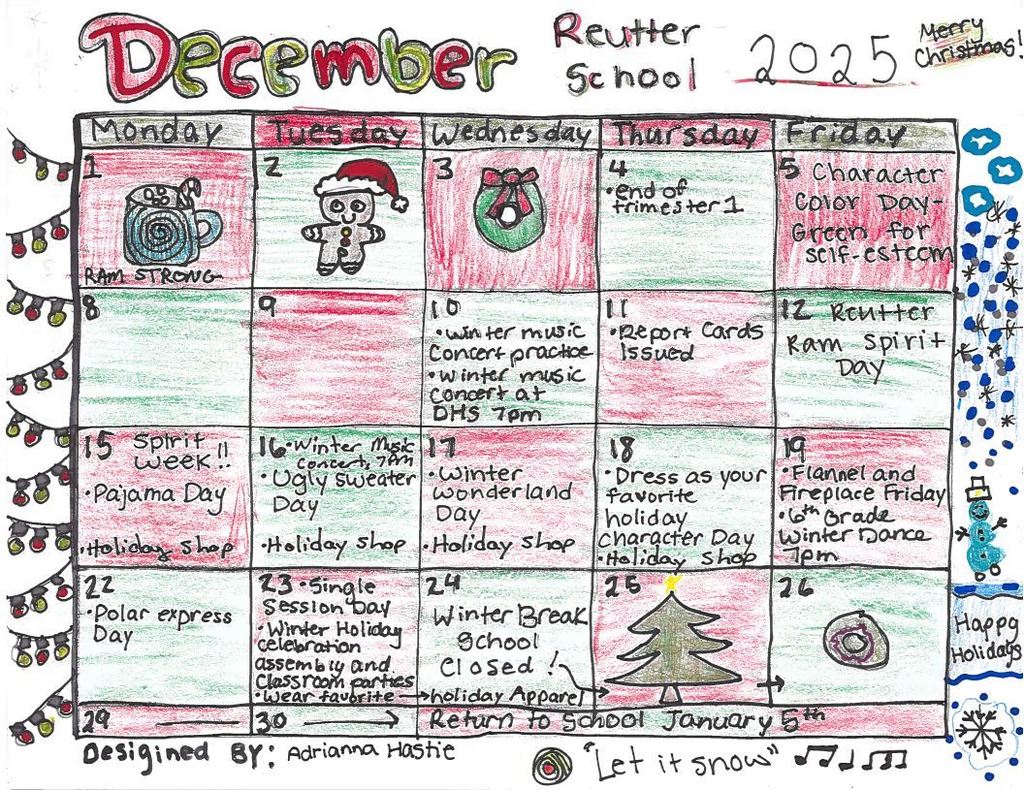 December
Reutter
School
2025
Merry
Christmas!
Monday
Tuesday
Wednesday
Thursday
Friday
1
RAM STRONG
2
3
4
•end of
trimester 1
5 Character
Color Day-
Green for
self-esteem
8
9
10
•Winter music
Concert practice
•Winter music
concert at
DHS 7pm
11
•Report Cards
Issued
12 Reutter
Ram Spirit
Day
15 Spirit
Week!!
•Pajama Day
•Holiday Shop
16•Winter Music
Concert, 7pm
•Ugly sweater
Day
•Holiday Shop
17
•Winter
Wonderland
Day
•Holiday Shop
18
•Dress as your
favorite
holiday
Character Day
•Holiday Shop
19
•Flannel and
Fireplace Friday
•6th Grade
Winter Dance
7pm
22
•Polar express
Day
23 •Single
Session Day
•Winter Holiday
celebration
assembly and
Classroom parties
•Wear favorite → holiday Apparel
24
Winter Break
School
Closed!
25
26
29
30
Return to School January 5th
Happy
Holidays
Desigined By: Adrianna Hastie
"Let it snow"